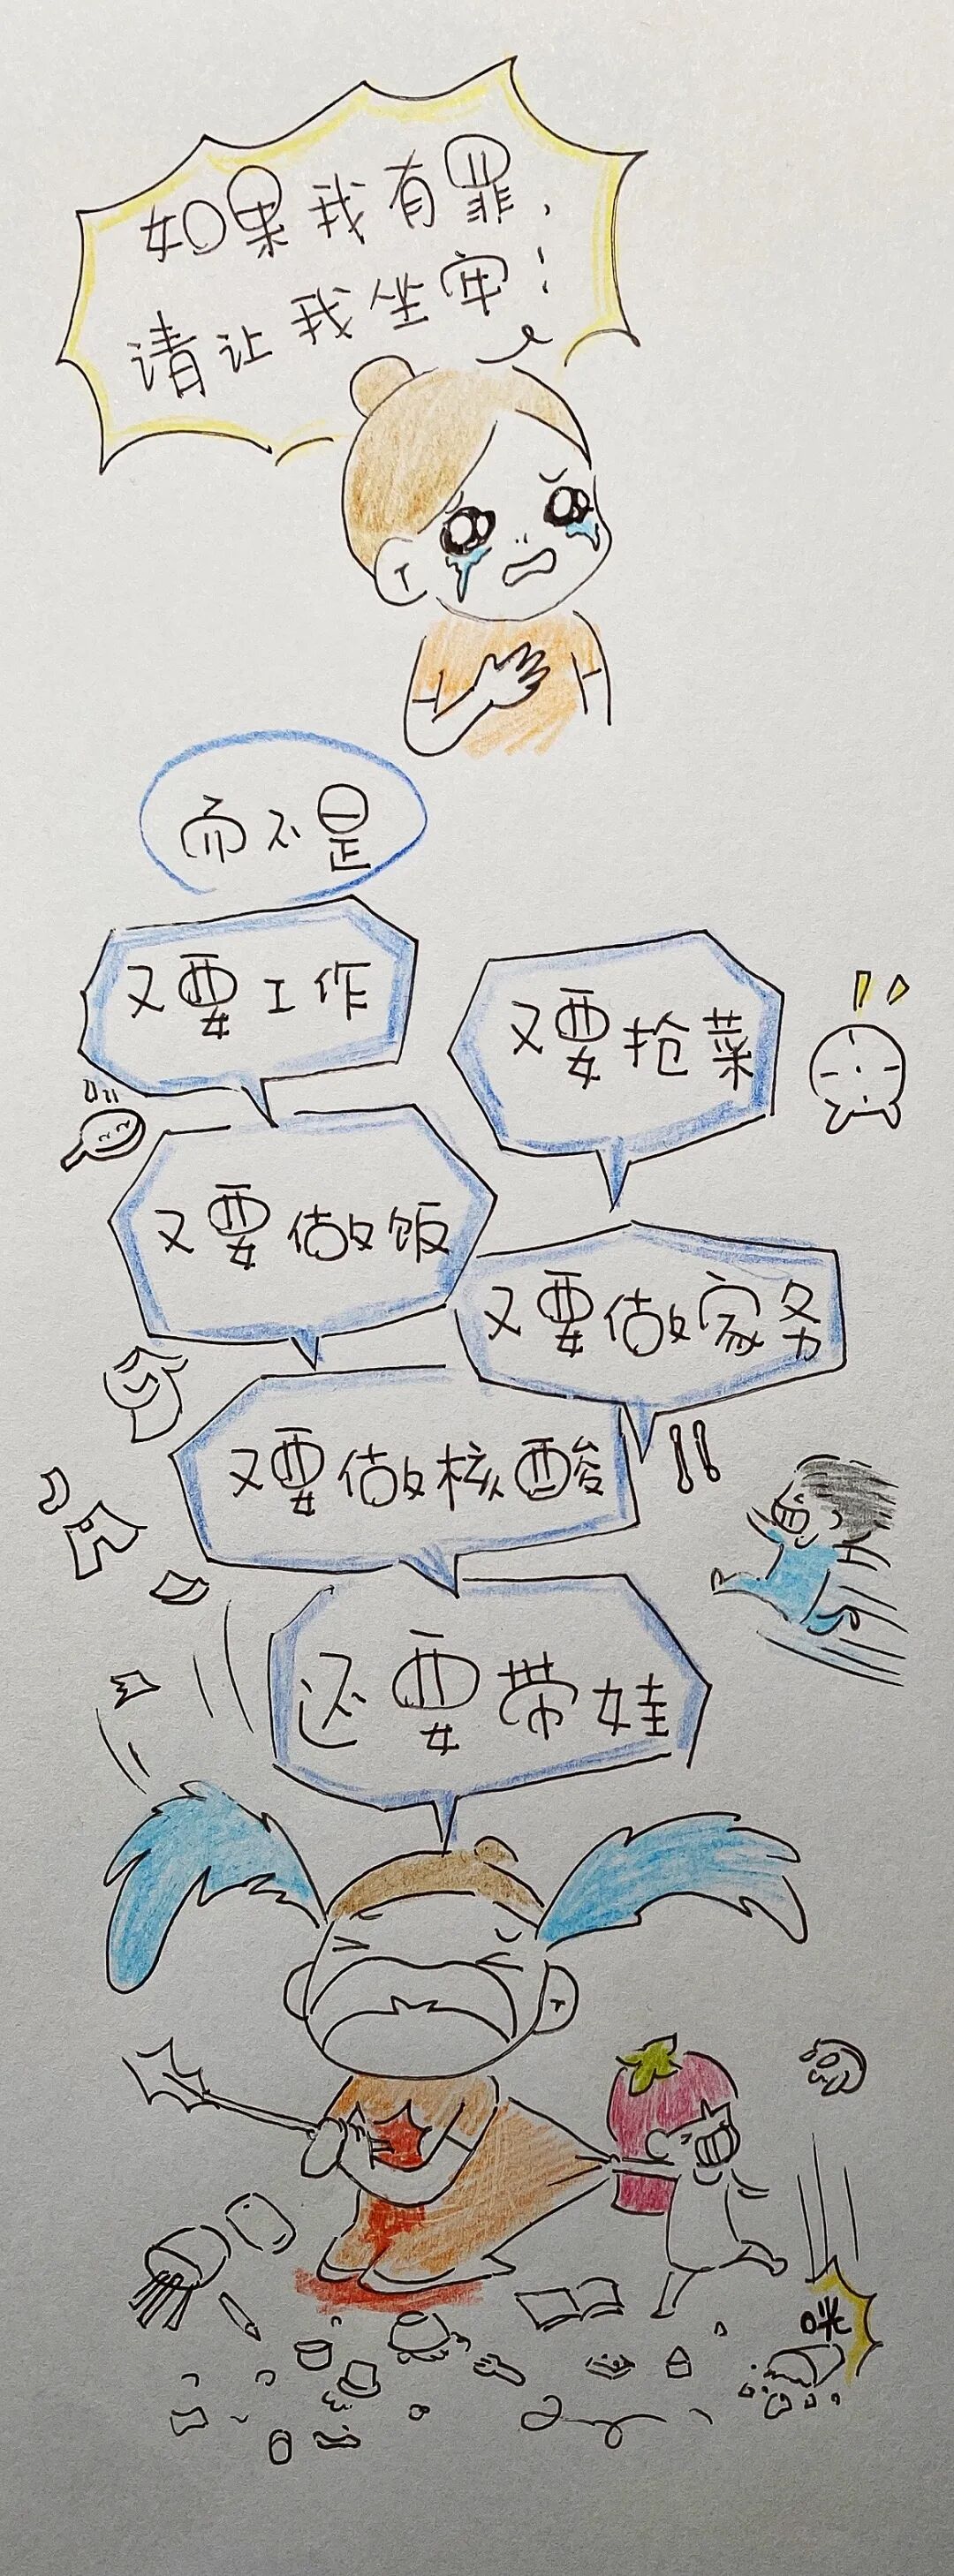 如果我有罪，
请让我坐牢！
而不是
又要工作
又要抢菜
又要做饭
又要做家务
又要做核酸
！！
还要带娃
咪